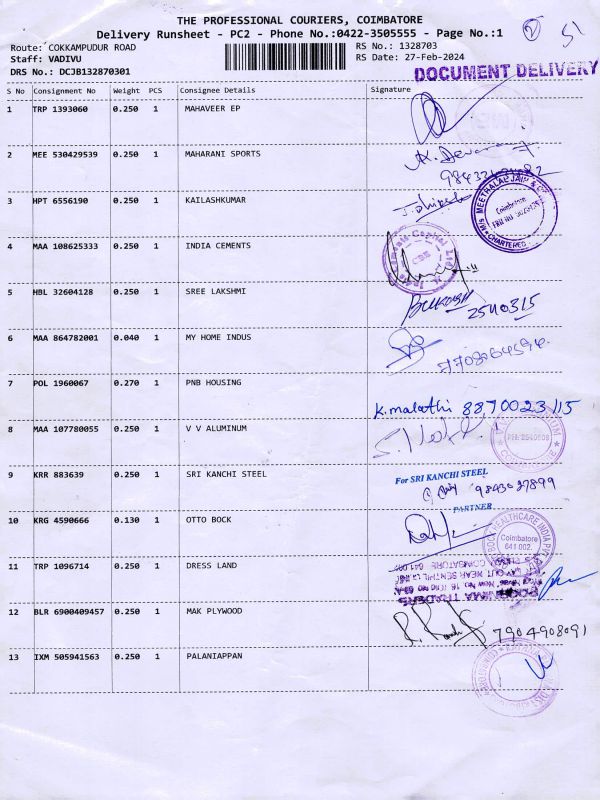 THE PROFESSIONAL COURIERS, COIMBATORE
Delivery Runsheet - PC2 - Phone No.:0422-3505555 - Page No.:1
Route: COKKAMPUDUR ROAD
RS No.: 1328703
Staff: VADIVU
RS Date: 27-Feb-2024
DRS No.: DCJB132870301
DOCUMENT DELIVERY
S No Consignment No Weight PCS Consignee Details Signature
1 TRP 1393060 0.250 1 MAHAVEER EP
2 MEE 530429539 0.250 1 MAHARANI SPORTS
3 HPT 6556190 0.250 1 KAILASHKUMAR
Coimbatore
CHARTERED
4 MAA 108625333 0.250 1 INDIA CEMENTS
5 HBL 32604128 0.250 1 SREE LAKSHMI
2540315
6 MAA 864782001 0.040 1 MY HOME INDUS
7 POL 1960067 0.270 1 PNB HOUSING
K.malathi 8870023115
8 MAA 107780055 0.250 1 V V ALUMINUM
9 KRR 883639 0.250 1 SRI KANCHI STEEL
For SRI KANCHI STEEL
9843027899
PARTNER
10 KRG 4590666 0.130 1 OTTO BOCK
BOCK HEALTHCARE INDIA PVT
Coimbatore
641 002.
11 TRP 1096714 0.250 1 DRESS LAND
12 BLR 6900409457 0.250 1 MAK PLYWOOD
7904908091
13 IXM 505941563 0.250 1 PALANIAPPAN